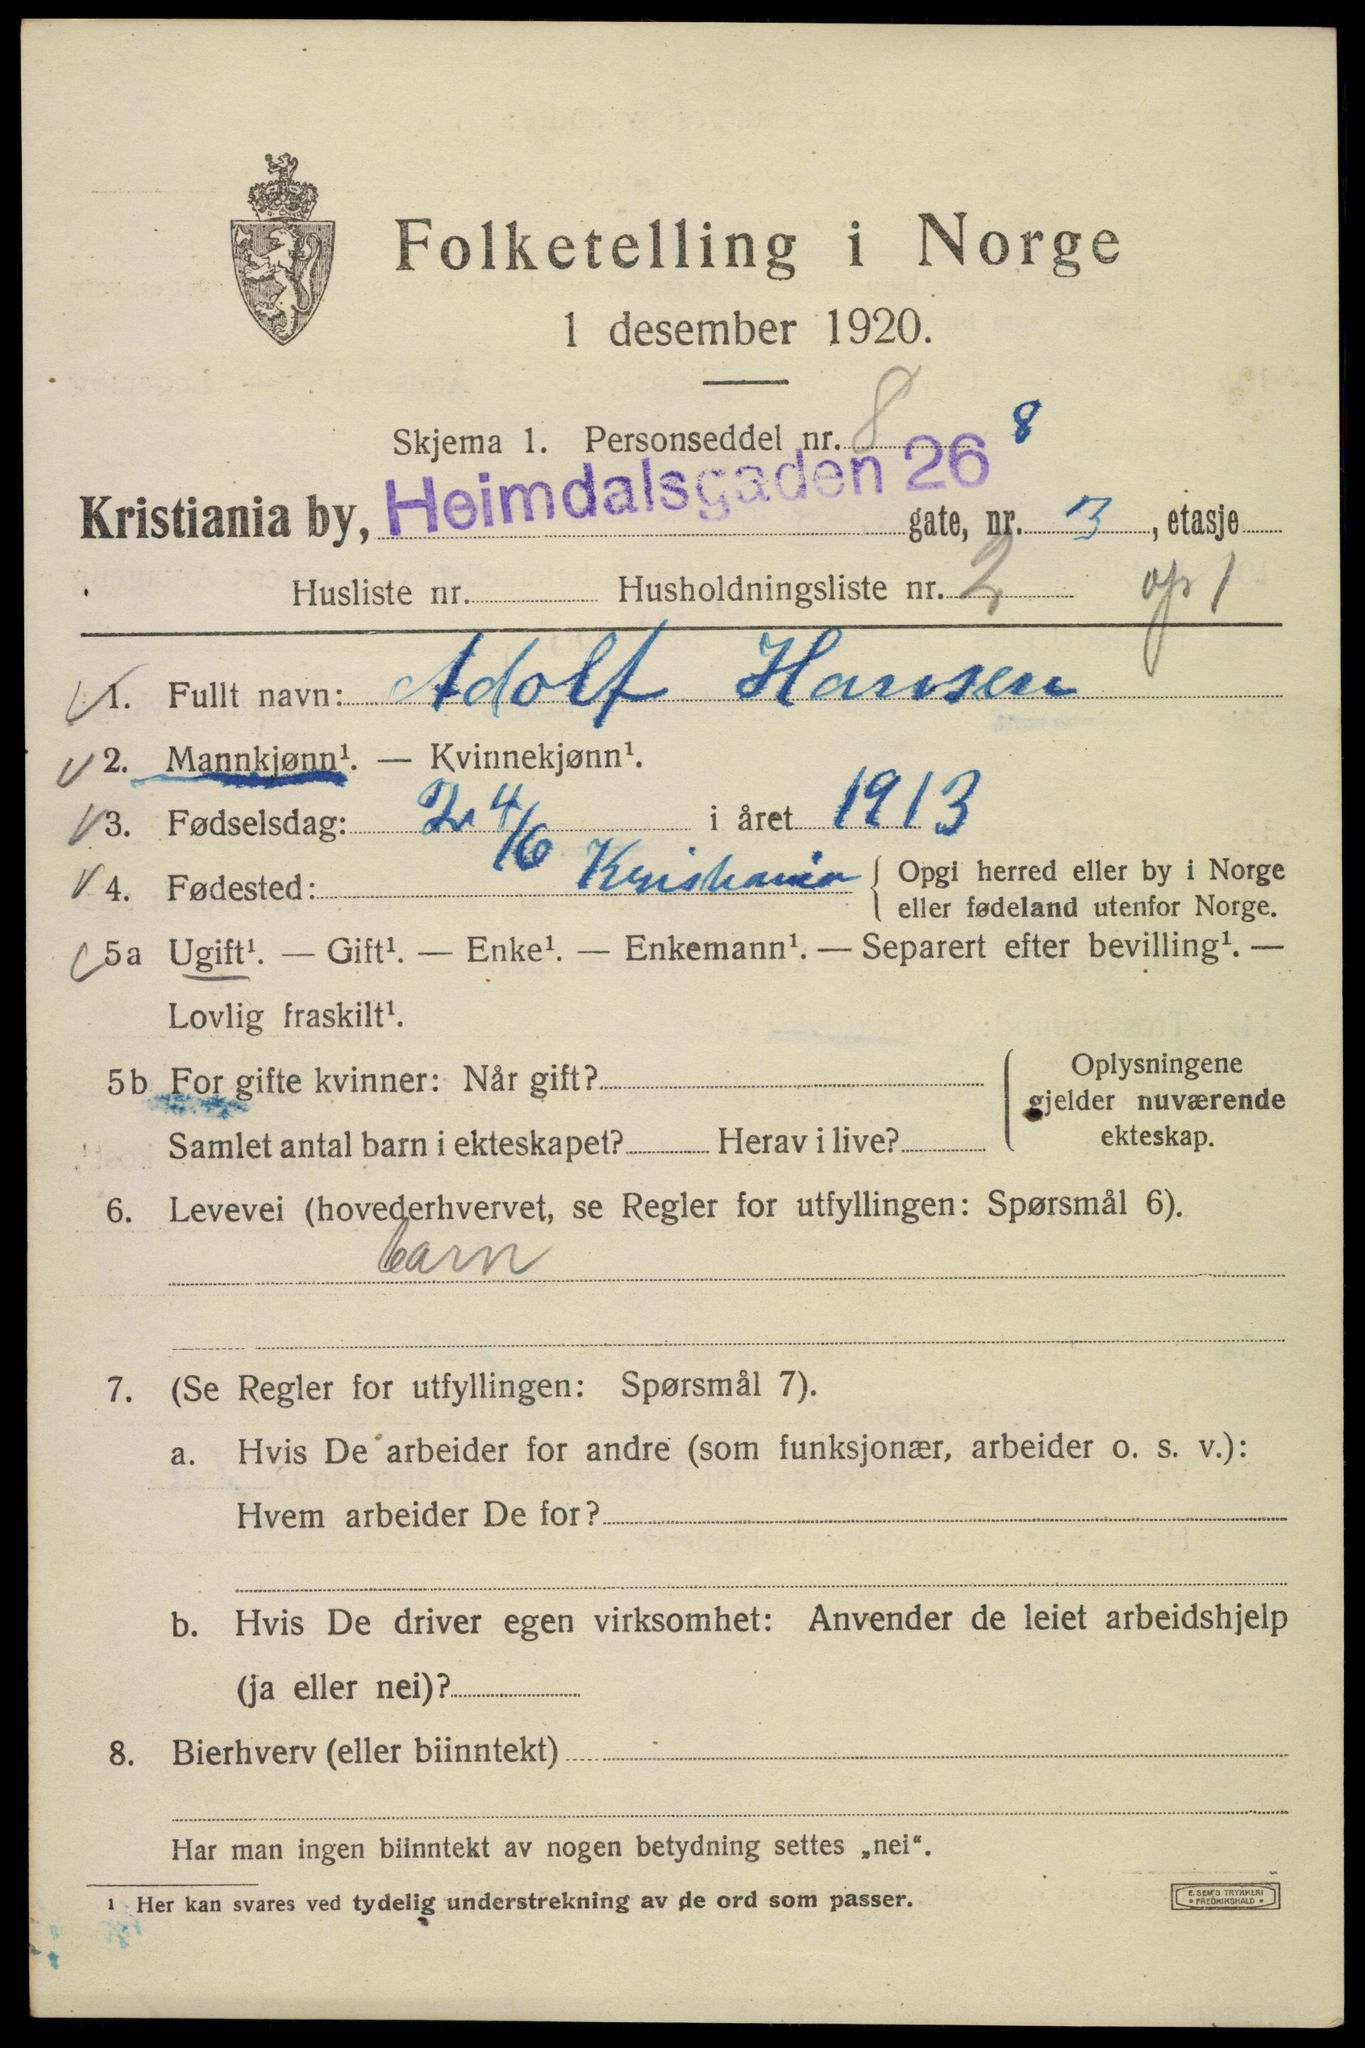 Folketelling i Norge
1 desember 1920.
Skjema 1. Personseddel nr. 8 8
Kristiania by, Heimdalsgaden 26 gate, nr. 3, etasje
Husliste nr. Husholdningsliste nr. 2 op 1
1. Fullt navn: Adolf Hansen
2. Mannkjønn¹. — Kvinnekjønn¹.
3. Fødselsdag: 24/6 i året 1913
4. Fødested: Kristiania { Opgi herred eller by i Norge
eller fødeland utenfor Norge.
5a Ugift¹. — Gift¹. — Enke¹. — Enkemann¹. — Separert efter bevilling¹. —
Lovlig fraskilt¹.
5b For gifte kvinner: Når gift? Oplysningene
gjelder nuværende
Samlet antal barn i ekteskapet? Herav i live? ekteskap.
6. Levevei (hovederhvervet, se Regler for utfyllingen: Spørsmål 6).
barn
7. (Se Regler for utfyllingen: Spørsmål 7).
a. Hvis De arbeider for andre (som funksjonær, arbeider o. s. v.):
Hvem arbeider De for?
b. Hvis De driver egen virksomhet: Anvender de leiet arbeidshjelp
(ja eller nei)?
8. Bierhverv (eller biinntekt)
Har man ingen biinntekt av nogen betydning settes „nei“.
1 Her kan svares ved tydelig understrekning av de ord som passer.
E. SEM'S TRYKKERI
FREDRIKSHALD